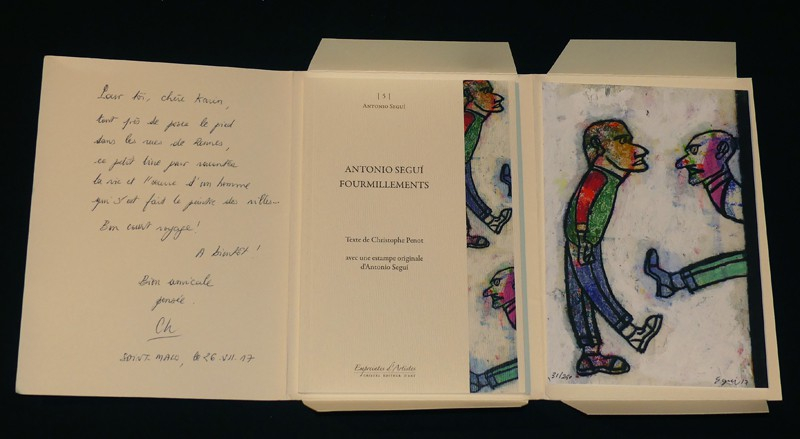 Pour toi, chère Karin,
tout près de poser le pied
dans les rues de Rennes,
ce petit livre pour
la vie et l'œuvre d'un homme
qui s'est fait le peintre des villes...
Bon vent voyage !
A bientôt !
Bien amicale
pensée.
Ch
SAINT-MALO, le 26.VII.17
| 5 |
ANTONIO SEGUÍ
ANTONIO SEGUÍ
FOURMILLEMENTS
Texte de Christophe Penot
avec une estampe originale
d'Antonio Seguí
Empreintes d'Artistes
CRISTEL ÉDITEUR D'ART